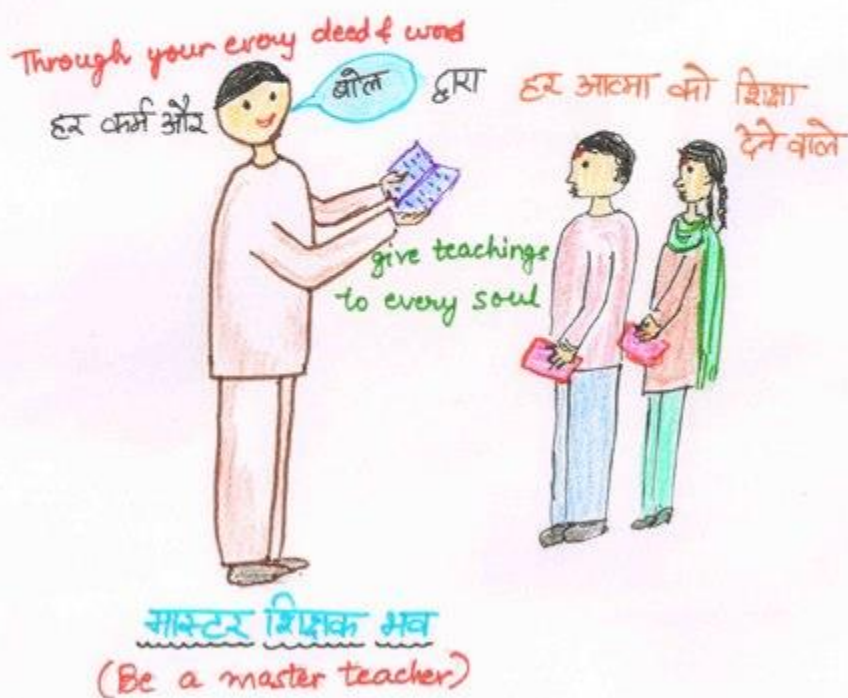 Through your every deed & word
हर कर्म और बोल द्वारा
हर आत्मा को शिक्षा
देने वाले
give teachings
to every soul
मास्टर शिक्षक भव
(Be a master teacher)